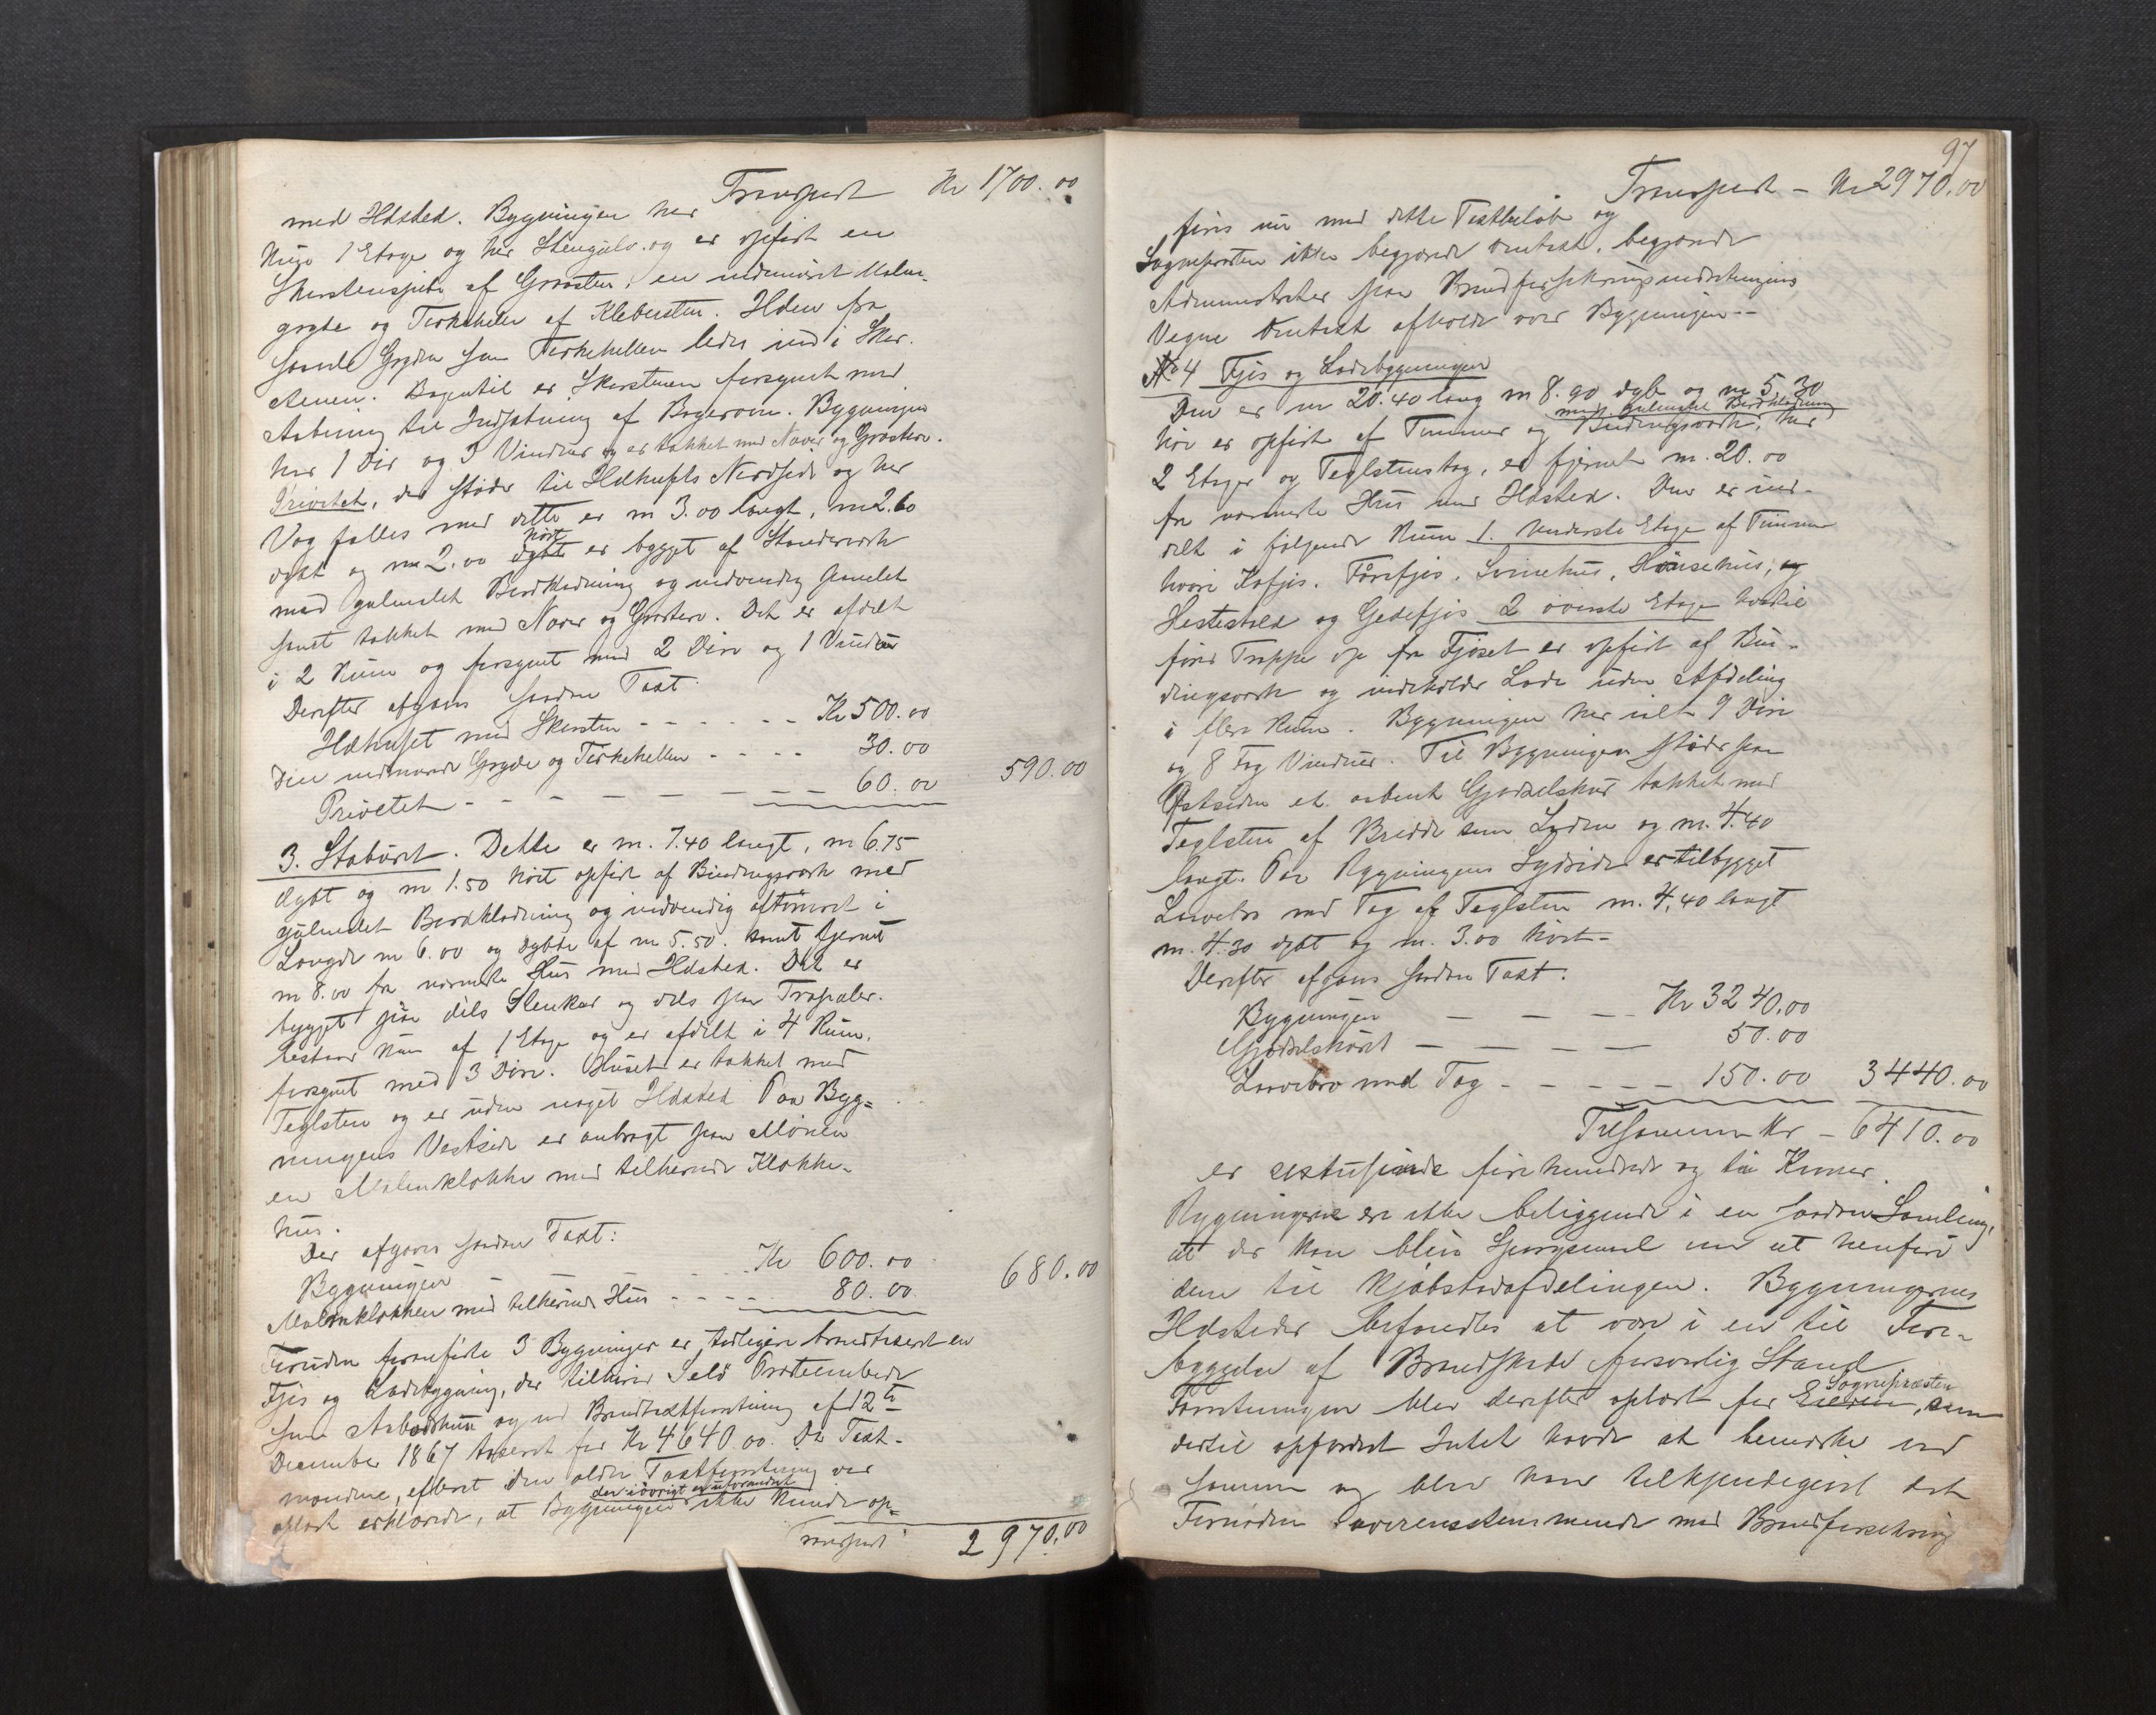 Transport Kr 1700.00
med Ildsted. Bygningen har
kuns 1 Etage og har Stengulv og er opført en
Skorstenspibe af Graasten, en indmuret Malm-
gryde og Tørkehelle af Klebersten. Ilden fra
saavel Gryden som Tørkehellen ledes ind i Skor-
stenen. Bagentil er Skorstenen forsynet med
Aabning til Indsætning af Bagerovn. Bygningen
har 1 Dør og 3 Vinduer og er tækket med Næver og Græstorv.
Privetet, der støder til Ildhusets Nordside og har
Væg fælles med dette er m 3.00 langt, m 2.60
dybt og m 2.00 høit er bygget af Stenderværk
med gulmalet Bordklædning og indvendig panelet
samt tækket med Næver og Græstorv. Det er afdelt
i 2 Rum og forsynet med 2 Døre og 1 Vindue
Derefter afgaves saadan Taxt:
Ildhuset med Skorsten - - - - - - Kr 500.00
Den indmurede Gryde og Tørkehellen - - - - 30.00
Privetet - - - - - - - - - 60.00 590.00
3. Stabüret. Dette er m. 7.40 langt, m 6.75
dybt og m 1.50 høit opført af Bindingsværk med
gulmalet Bordklædning og indvendig aftømret i
Længde m 6.00 og Dybde af m 5.50. samt fjernet
m 8.00 fra nærmeste Hus med Ildsted. Det er
bygget paa dels Stenkar og dels paa Træpæler.
bestaar kun af 1 Etage og er afdelt i 4 Rum.
forsynet med 3 Døre. Huset er tækket med
Teglsten og er uden noget Ildsted Paa Byg=
ningens Vestside er anbragt paa Mønen
en Malmklokke med tilhørende Klokke-
hus.
Der afgaves saadan Taxt:
Bygningen - - - - - Kr 600.00
Malmklokken med tilhørende Hus - - - - 80.00 680.00
Foruden foranførte 3 Bygninger er tidligere brandtaxeret en
Fjøs og Ladebygning, der tilhører Selø Præsteembede
som Aabodshus og ved Brandtaxtforretning af 12te
December 1867 taxeret for Kr 4640.00. Da Taxt-
mændene, efterat den ældre Taxtforretning var
oplæst erklærede, at Bygningen der iøvrigt er uforandret ikke kunde op=
Transport 2970.00
97
Transport - Kr 2970.00
føres nu med dette Taxtbeløb og
Sognepræsten ikke begjærede Omtaxt, begjærede
Administrator paa Brandforsikringsindretningens
Vegne Omtaxt afholdt over Bygningen --
No 4 Fjøs og Ladebygningen
Den er m 20.40 lang m 8.90 dyb og m 5.30
høi er opført af Tømmer og Bindingsværk, med gulmalet Bordklædning har
2 Etager og Teglstenstag, er fjernet m. 20.00
fra nærmeste Hus med Ildsted. Den er ind-
delt i følgende Rum 1. Underste Etage af Tømmer
hvori Kofjøs. Fårefjøs. Svinehus, Hönsehus, og
Hestestald og Gedefjøs 2 øverste Etage hvortil
fører Trappe op fra Fjøset er opført af Bin-
dingsværk og indeholder Lade uden Afdeling
i flere Rum. Bygningen har ialt 9 Døre
og 8 Fag Vinduer. Til Bygningen støder paa
Østsiden et aabent Gjødselskur tækket med
Teglsten af Bredde som Laden og m. 4.40
langt. Paa Bygningens Sydside er tilbygget
Laavebro med Tag af Teglsten m. 4.40 langt
m. 4.30 dybt og m. 3.00 høit -
Derefter afgaves saadan Taxt:
Bygningen - - - - Kr 3240.00
Gjødselskuret - - - - - 50.00
Laavebro med Tag - - - - - 150.00 3440.00
Tilsammen Kr - 6410.00
er sextusinde firehundrede og ti Kroner.
Bygningerne er ikke beliggende i en saadan Samling,
at der kan blive Spørgsmaal om at henføre
dem til Kjøbstadafdelingen. Bygningernes
Ildsteder befandtes at være i en til Fore-
byggelse af Brandskade forsvarlig Stand
Forretningen blev derefter oplæst for Eieren, Sognepræsten som
dertil opfordret Intet havde at bemærke ved
samme og blev ham tilkjendegivet det
Fornødne overensstemmende med Brandforsikring